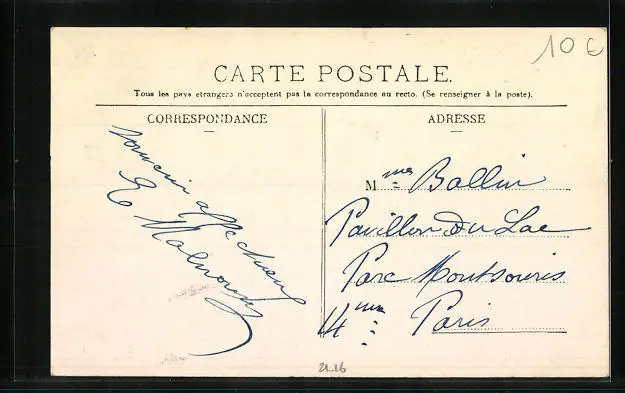 10 €
CARTE POSTALE.
Tous les pays étrangers n'acceptent pas la correspondance au recto. (Se renseigner à la poste).
CORRESPONDANCE
ADRESSE
Souvenir affectueux
E
Mmes Ballin
Pavillon du Lac
Parc Montsouris
14eme Paris
21-16